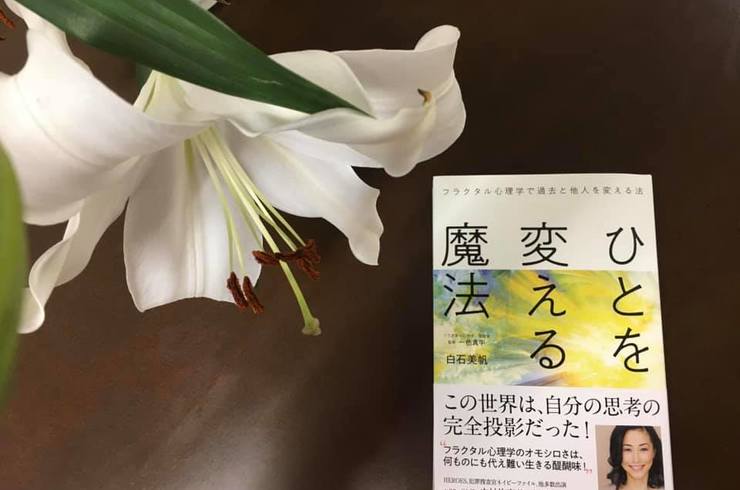 フラクタル心理学で過去と他人を変える法
ひとを
変える
魔法
一色真宇
白石美帆
この世界は、自分の思考の
完全投影だった!
“フラクタル心理学のオモシロさは、
何ものにも代え難い生きる醍醐味!„
HEROES、犯罪捜査官ネイビーファイル、他多数出演